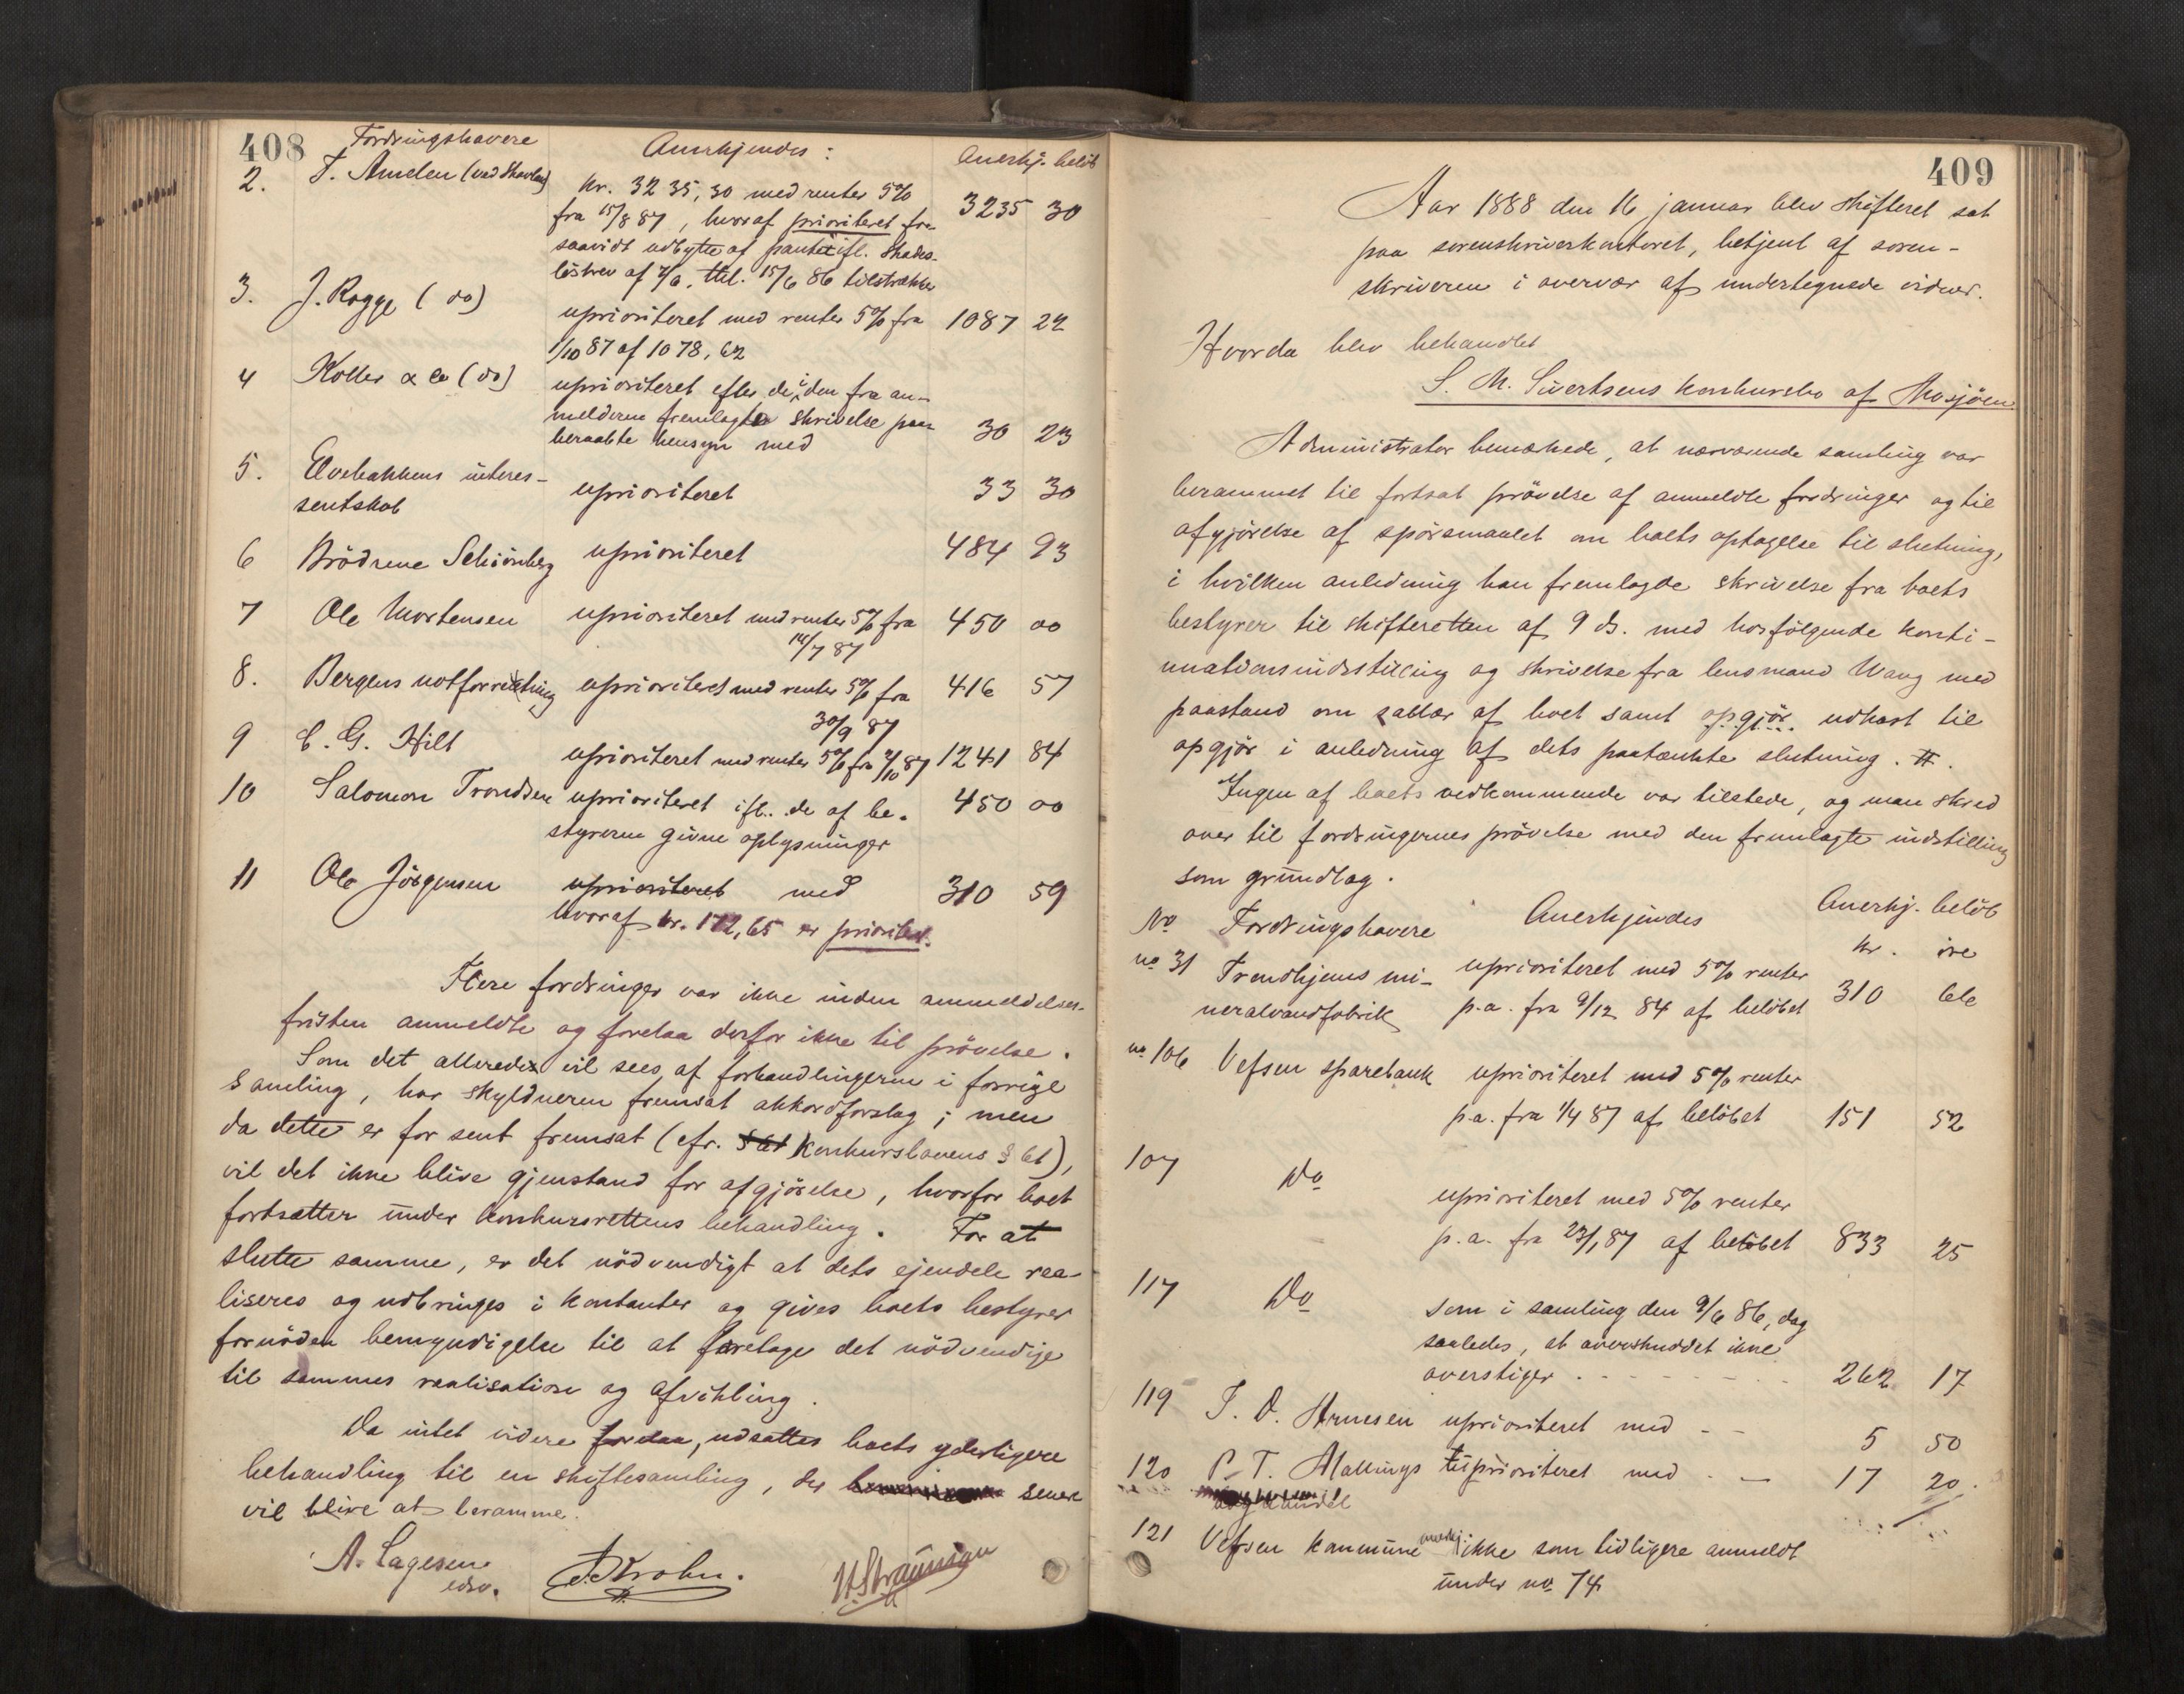 408
Fordringshavere Anerkjendes: Anerkj. beløb
2. T. Amelen (ved Skavlan) kr. 3235,30 med renter 5% 3235 30
fra 15/8 87, hvoraf prioriteret for
saavidt udbytte af pantet ifl. skades-
løsbrev af 4/6, thl. 15/6 86 tilstrækker
3. J. Rogge (do) uprioriteret med renter 5% fra 1087 22
1/10 87 af 1078,62
4 Koller & Co (do) uprioriteret efter de i den fra an-
melderen fremlagte skrivelse paa-
beraabte hensyn med 30 23
5. Elvebakkens interes-
sentskab uprioriteret 33 30
6 Brødrene Schiønberg uprioriteret 484 93
7 Ole Mortensen uprioriteret med renter 5% fra 450 00
14/7 87
8. Bergens notforretning uprioriteret med renter 5% fra 416 57
30/9 87
9 C. G. Hilt uprioriteret med renter 5% fra 4/10 87 1241 84
10 Salomon Trondsen uprioriteret ifl. de af be- 450 00
styreren givne oplysninger
11 Ole Jörgensen uprioriteret med 310 59
hvoraf kr. 172,65 er prioritet.
Flere fordringer var ikke inden anmeldelses-
fristen anmeldte og forelaa derfor ikke til prövelse.
Som det allerede vil sees af forhandlingerne i forrige
samling, har skyldneren fremsat akkordforslag; men
da dette er for sent fremsat (cfr. § 61 konkurslovens § 61),
vil det ikke blive gjenstand for afgjörelse, hvorfor boet
fortsætter under konkursrettens behandling. For at
slutte samme, er det nödvendigt at dets ejendele rea-
liseres og udbringes i kontanter og gives boets bestyrer
fornöden bemyndigelse til at foretage det nödvendige
til sammes realisation og afvikling.
Da intet videre forelaa, udsattes boets yderligere
behandling til en skiftesamling, der senere
vil blive at beramme.
A. Lagesen
edsv.
Krohn.
409
Aar 1888 den 16 januar blev skifteret sat
paa sorenskriverkontoret, betjent af soren-
skriveren i overvær af undertegnede vidner.
Hvorda blev behandlet
S. M. Sivertsens konkursbo af Mosjöen.
Administrator bemærkede, at nærværende samling var
berammet til fortsat prövelse af anmeldte fordringer og til
afgjörelse af spörsmaalet om boets optagelse til slutning,
i hvilken anledning han fremlagde skrivelse fra boets
bestyrer til skifteretten af 9 ds. med hosfölgende konti-
nuationsindstilling og skrivelse fra lensmand Wang med
paastand om sallær af boet samt opgjör udkast til
opgjör i anledning af dets paatænkte slutning. #.
Ingen af boets vedkommende var tilstede, og man skred
over til fordringernes prövelse med den fremlagte indstilling
som grundlag.
No Fordringshavere Anerkjendes Anerkj. beløb
kr. öre
no 31 Trondhjems mi- uprioriteret med 5% renter
neralvandfabrik p.a. fra 9/12 84 af beløbet 310 66
no 106 Vefsen sparebank uprioriteret med 5% renter
p.a. fra 1/4 87 af belöbet 151 52
107 Do uprioriteret med 5% renter
p.a. fra 23/1 87 af beløbet 833 25
117 Do som i samling den 9/6 86, dog
saaledes, at overskuddet ikke
overstiger 262 17
119 J. D. Arnesen uprioriteret med 5 50
120 P. T. Mallings uprioriteret med 17 20
121 Vefsen kommune anerkj. ikke som tidligere anmeldt
under no 74